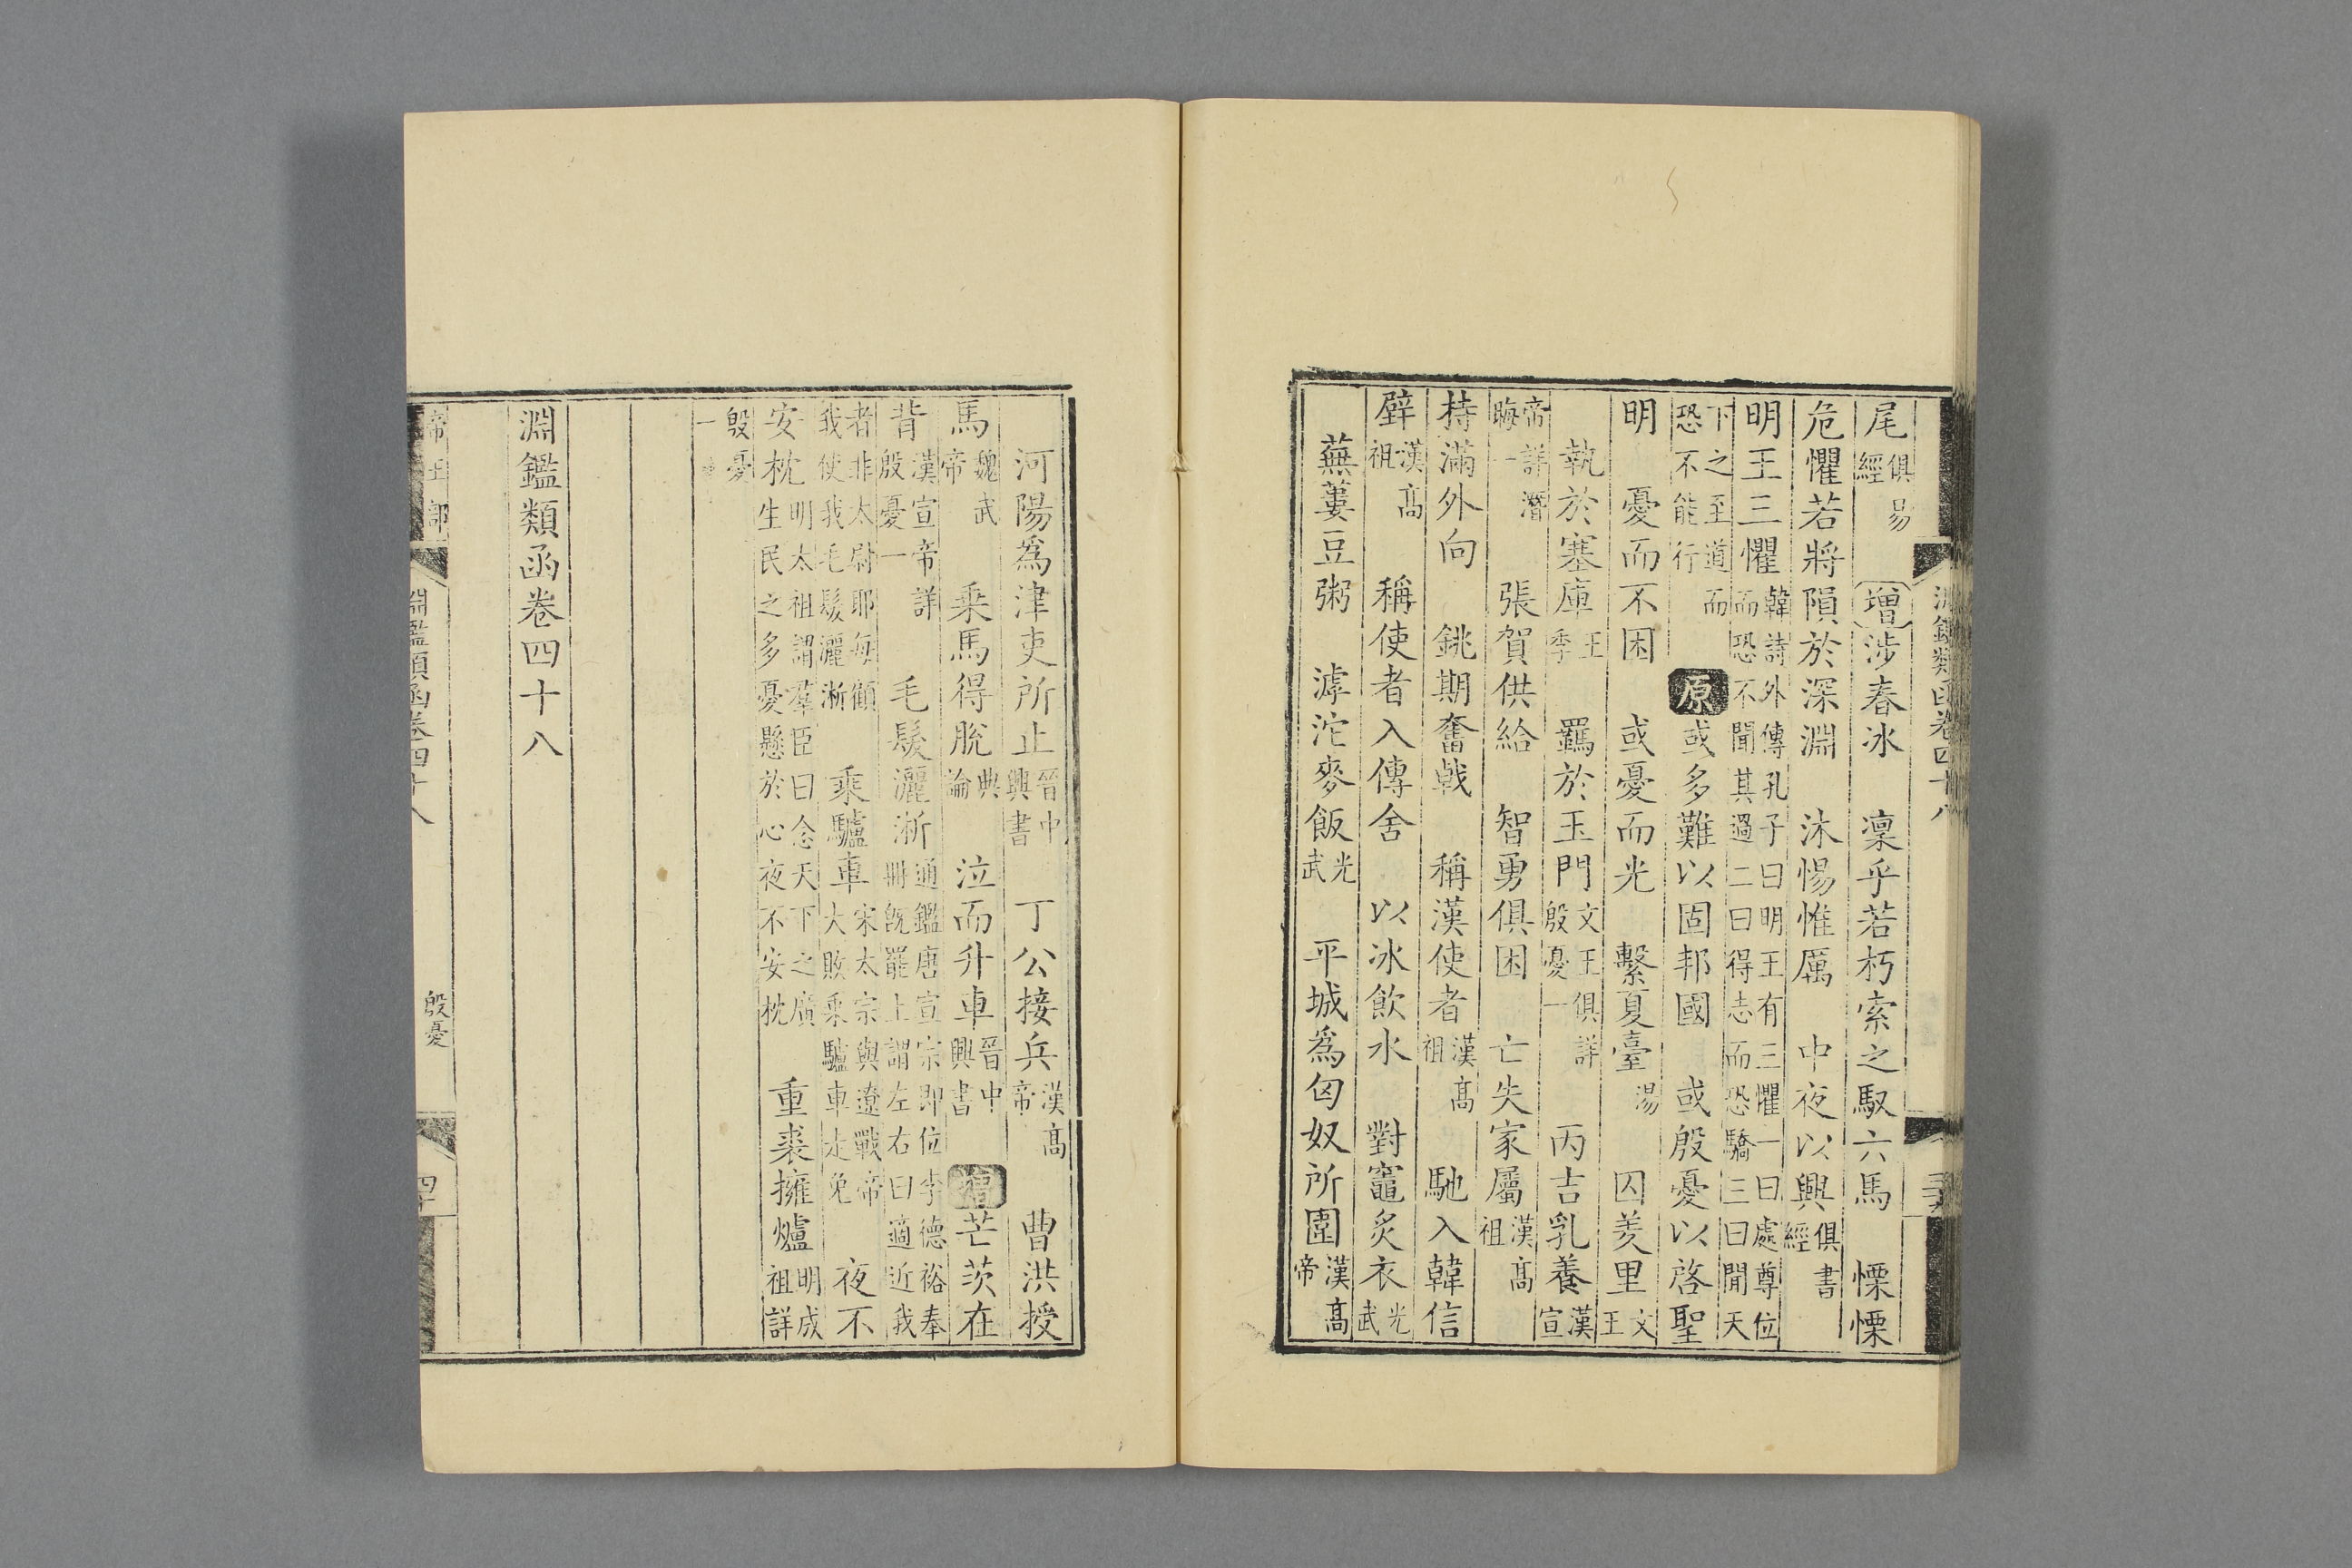 淵鑑類函卷四十八
尾俱易經　增涉春冰　凜乎若朽索之馭六馬　慄慄
危懼若將隕於深淵　沐惕惟厲　中夜以興俱書經
明王三懼韓詩外傳孔子曰明王有三懼一曰處尊位而恐不聞其過二曰得志而恐驕三曰聞天
下之至道而恐不能行　原或多難以固邦國　或殷憂以啓聖
明　憂而不困　或憂而光　繫夏臺湯　囚羑里文王
執於塞庫王季　羈於玉門文王俱詳殷憂一　丙吉乳養漢宣
帝詳潛晦一　張賀供給　智勇俱困　亡失家屬漢高祖
持滿外向　銚期奮戟　稱漢使者漢高祖　馳入韓信
壁漢高祖　稱使者入傳舍　以冰飲水　對竈炙衣光武
蕪蔞豆粥　滹沱麥飯光武　平城爲匈奴所圍漢高帝
河陽爲津吏所止晉中興書　丁公接兵漢高帝　曹洪授
馬魏武帝　乘馬得脫典論　泣而升車晉中興書　增芒茨在
背漢宣帝詳殷憂一　毛髮灑淅通鑑唐宣宗即位李德裕奉冊旣罷上謂左右曰適近我
者非太尉耶每顧我使我毛髮灑淅　乘驢車宋太宗與遼戰帝大敗乘驢車走免　夜不
安枕明太祖謂羣臣曰念天下之廣生民之多憂懸於心夜不安枕　重裘擁爐明成祖詳
殷憂一
淵鑑類函卷四十八
帝王部
淵鑑類函卷四十八
殷憂